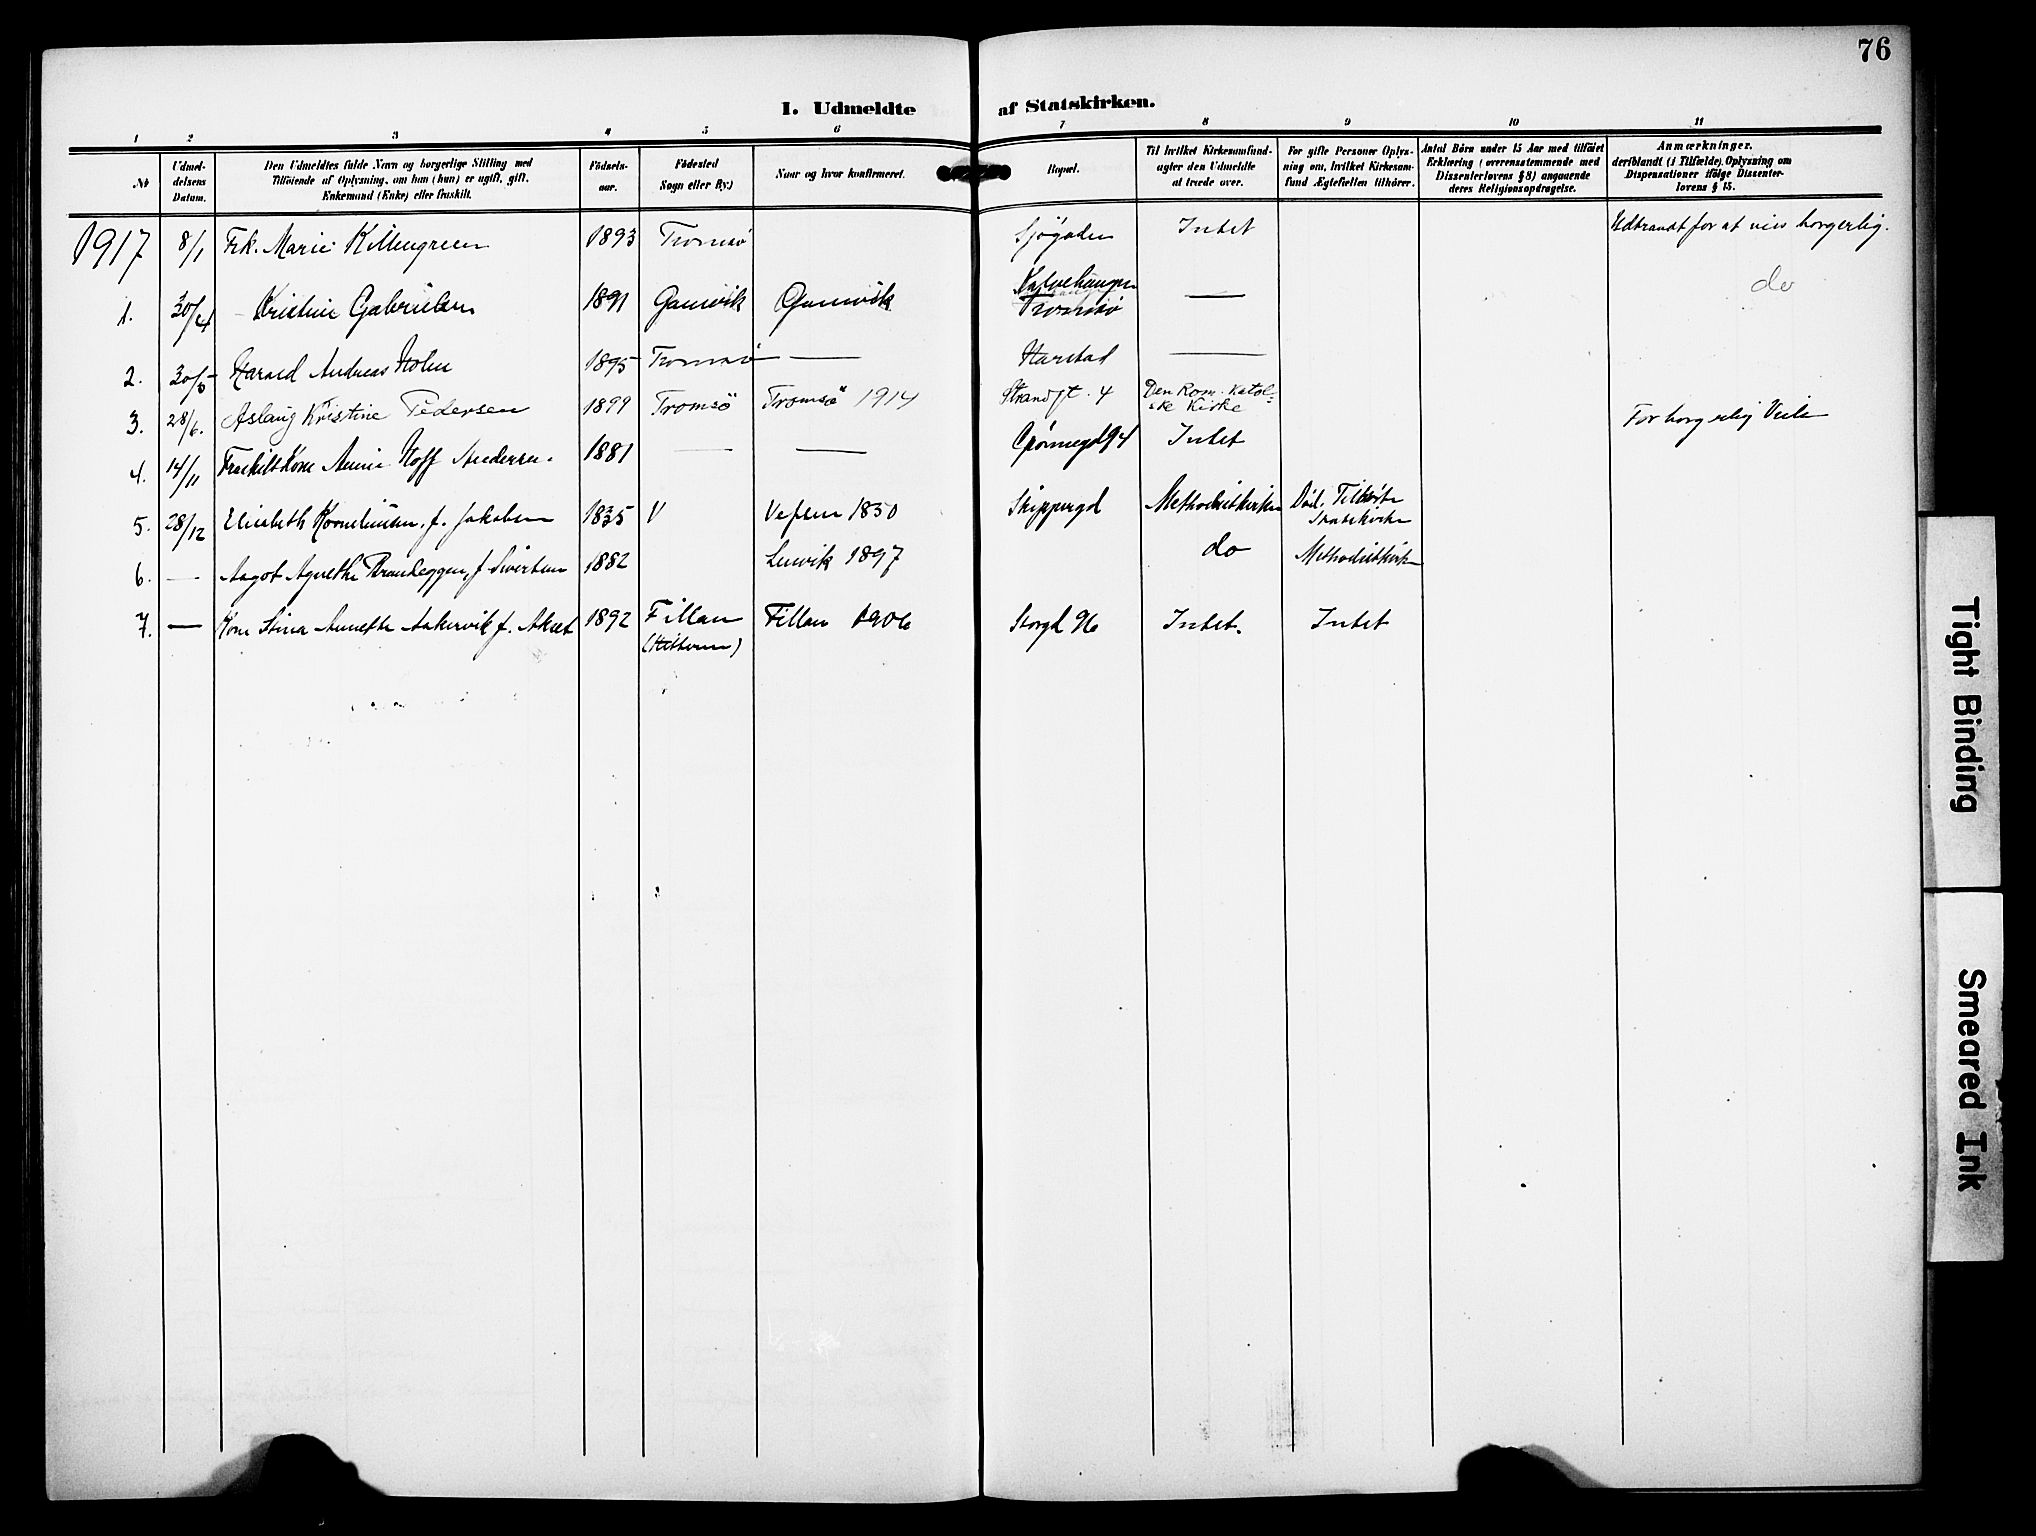 76
I. Udmeldte af Statskirken.
1 2 3 4 5 6 7 8 9 10 11
No
Udmeldelsens Datum.
Den Udmeldtes fulde Navn og borgerlige Stilling med
Tilføiende af Oplysning, om han (hun) er ugift, gift,
Enkemand (Enke) eller fraskilt.
Fødselsaar.
Fødested
Sogn eller By.)
Naar og hvor konfirmeret.
Bopæl.
Til hvilket Kirkesamfund-
agter den Udmeldte
at træde over.
For gifte Personer Oplys-
ning om, hvilket Kirkesam-
fund Ægtefællen tilhører.
Antal Børn under 15 Aar med tilføiet
Erklæring (overensstemmende med
Dissenterlovens § 8) angaaende
deres Religionsopdragelse.
Anmærkninger,
deriblandt (i Tilfælde) Oplysning om
Dispensationer ifølge Dissenter-
lovens § 15.
1917 8/1 Frk. Marie Killengreen 1893 Tromsø Sjøgaden Intet Udtraadt for at vies borgerlig.
1. 30/4 Kristine Gabrielsen 1891 Gamvik Gamvik Tromsø — do
2. 30/5 Harald Andreas Holm 1895 Tromsø — Harstad —
3. 28/6. Aslaug Kristine Pedersen 1899 Tromsö Tromsø 1914 Strandgt. 4 Den Rom. Katolske Kirke
4. 14/11 Fraskilt Kone Anna Hoff Andersen. 1881 — — Grønnegd 94 Intet For borgerlig Vielse
5. 28/12 Elisabeth Korneliussen, f. Jakobsen 1835 V Vefsen 1850 Skippergd Methodistkirken Død. Tilhørte Statskirken
6. — Aagot Agnethe f. Sivertsen 1882 Lenvik 1897 do Methodistkirken
7. — Kone Stina Annette Aakervik f. Akset 1892 Fillan (Hitteren) Fillan 1906 Storgd 96 Intet. Intet
Tight Binding
Smeared Ink